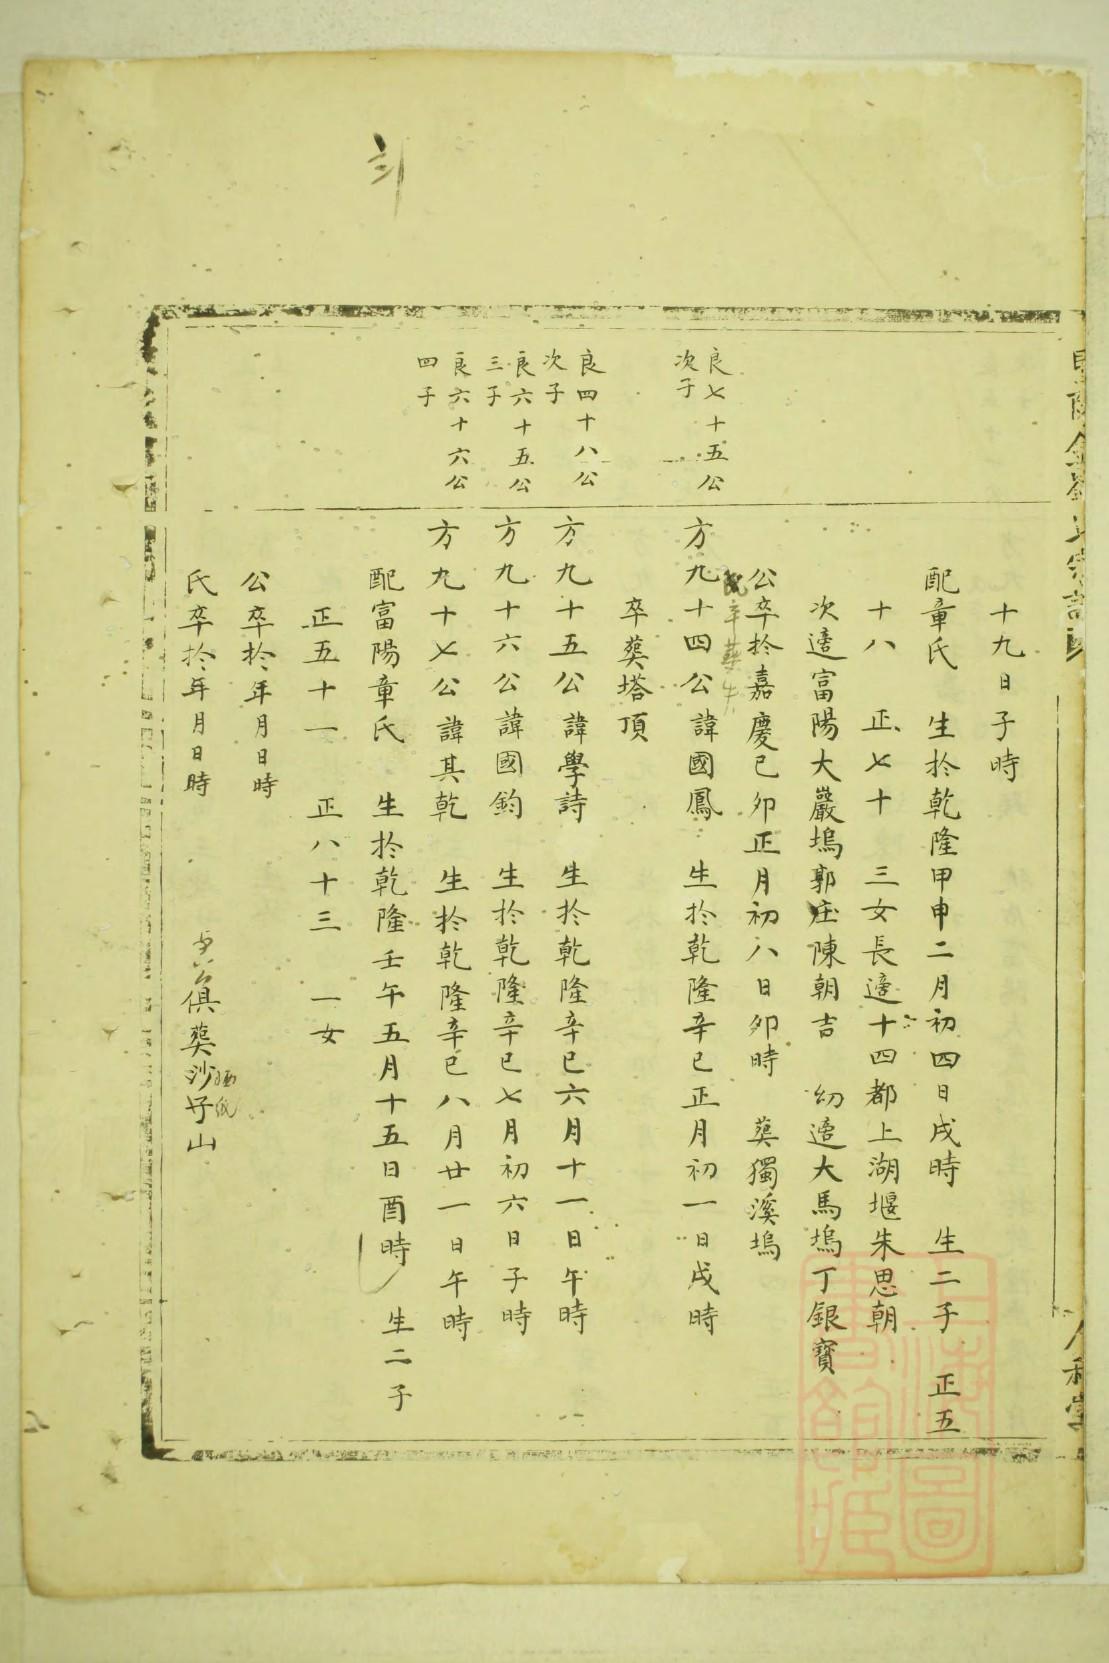 十九日子時
配章氏　生於乾隆甲申二月初四日戌時　生二子　正五
十八　正七十　三女長適十四都上湖堰朱思朝
次適富陽大巖塢郭庄陳朝吉　幼適大馬塢丁銀寳
公卒於嘉慶己卯正月初八日卯時　葬獨溪塢
氏卒葬
良七十五公
次子
方九十四公諱國鳳　生於乾隆辛巳正月初一日戌時
卒葬塔頂
良四十八公
次子
方九十五公諱學詩　生於乾隆辛巳六月十一日午時
良六十五公
三子
方九十六公諱國鈞　生於乾隆辛巳七月初六日子時
良六十六公
四子
方九十七公諱其乾　生於乾隆辛巳八月廿一日午時
配富陽章氏　生於乾隆壬午五月十五日酉時　生二子
正五十一　正八十三　一女
公卒於年月日時
氏卒於年月日時　俱葬沙圩山
上海圖書館藏